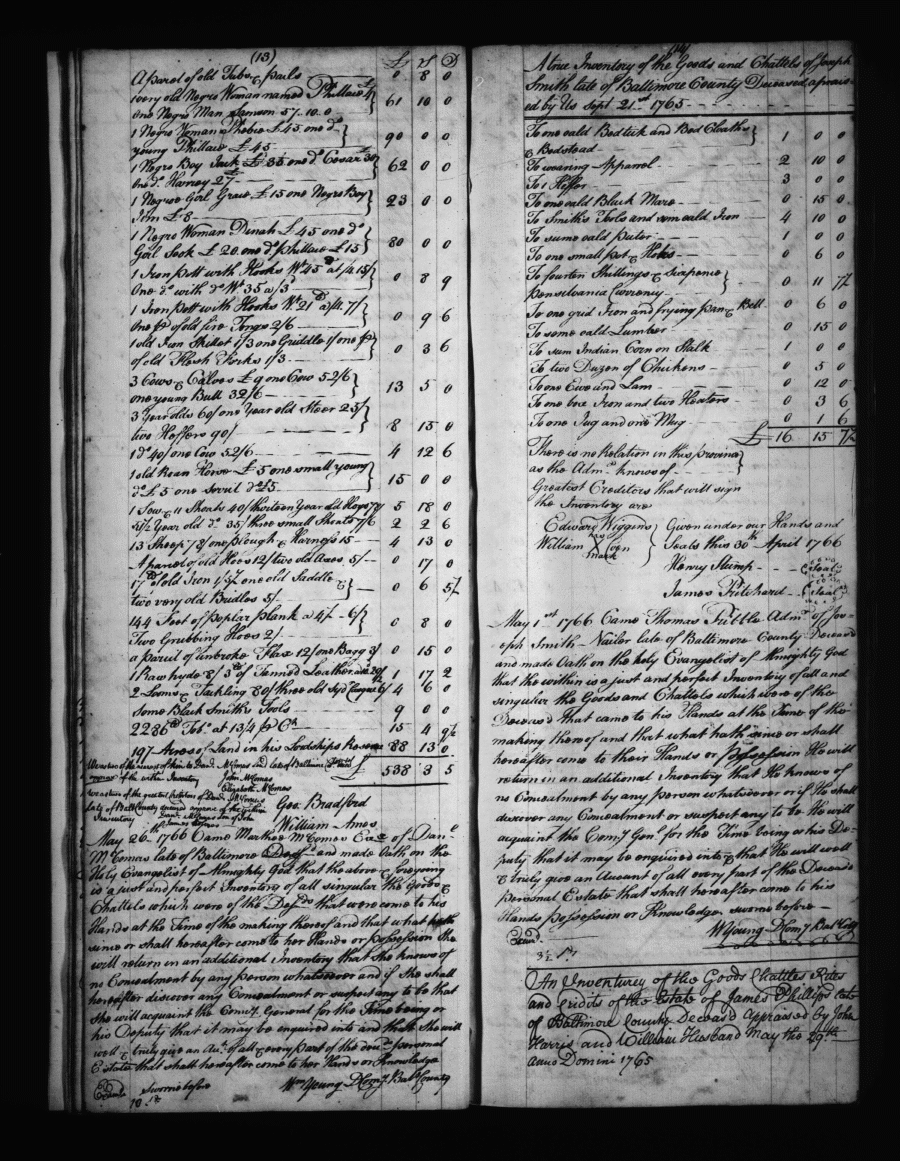 (13)
£ S D
A parcel of old Tubs & pails 0 8 0
1 very old Negro Woman named Phillace £4
One Negro Man Samson 57..10..0 } 61 10 0
1 Negro Woman Phebe £45 one do
young Phillace £45 } 90 0 0
1 Negro Boy Jack £35 one do Cesar 30
One do Harvey 27 } 62 0 0
1 Negroe Girl Grace £15 one Negro Boy
Jem £8 } 23 0 0
1 Negro Woman Dinah £45 one do
Girl Sook £20 one do Phillace £15 } 80 0 0
1 Iron pott with Hooks Wt 45 at /4 15/
One do with do Wt 35 a/3 } 0 8 9
1 Iron pott with Hooks Wt 21 a/4 7/
One pr of old fire Tongs 2/6 } 0 9 6
1 old Iron Skillet 1/3 one Griddle 1/ one pr
of old Flesh Forks 1/3 } 0 3 6
3 Cows & Calves £9 one Cow 52/6
one young Bull 32/6 } 13 5 0
3 Year olds 60/ one Year old Steer 25/
two Heffers 90/ } 8 15 0
1 do 40/ one Cow 52/6 4 12 6
1 old Roan Horse £5 one small young
do £5 one Sorril do £5 } 15 0 0
1 Sow & 11 Shoats 40/ thirteen Year old Hogs 78/ 5 18 0
4 1/2 Year old do 35/ three small Shoats 7/6 2 2 6
13 Sheep 78/ one plough & Harness 15 4 13 0
A parcel of old Hoes 12/ two old Axes 5/ 0 17 0
17 lb of old Iron 1/5 1/2 one old Saddle &
two very old Bridles 5/ } 0 6 5 1/2
144 Feet of poplar plank a 4/ 6/
Two Grubbing Hoes 2/ } 0 8 0
a parcil of unbroke Flax 12/ one Bagg 3/ 0 15 0
1 Raw hyde 8/ 3 lb of Tanned Leather 1 17 2
2 Looms & Tackling 80/ three old 6/ 4 6 0
Some Black Smiths Tools 9 0 0
2286 lb Tobo at 13/4 pr Ct 15 4 9 1/2
197 Acres of Land in his Lordships Reserve 88 13 0
£ 538 3 5
John McComas
Elizabeth McComas
Geo. Bradford
William Amos
May 26th 1766 Came Martha McComas Exx of Danl
McComas late of Baltimore Decd and made Oath on the
Holy Evangelist of Almighty God that the above & foregoing
is a just and perfect Inventory of all singular the Goods &
Chattels which were of the Decd that were come to his
Hands at the Time of the making thereof and that what hath
since or shall hereafter come to her Hands or possession She
will return in an additional Inventory that She knows of
no Concealment by any person whatsoever and if She shall
hereafter discover any Concealment or suspect any to be that
She will acquaint the Comy General for the Time being or
his Deputy that it may be enquired into and that She will
well & truly give an Acct of all & every part of the Decd personal
Estate that shall hereafter come to her Hands or Knowledge
Sworne before Wm Young DComy Balt County
A true Inventory of the Goods and Chattels of Joseph
Smith late of Baltimore County Deceased apraised
by Us Sept 21st 1765
To one oald Bedtick and Bed Cloaths
& Bedstead } 1 0 0
To wearing Apparrel 2 10 0
To 1 Heffer 3 0 0
To one oald Black Mare 0 15 0
To Smiths Tools and some oald Iron 4 10 0
To sume oald puter 1 0 0
To one small pot & Hoks 0 6 0
To fourten Shillings & Sixpence
pensilvania Currency } 0 11 7 1/2
To one grid Iron and frying pan & Bell 0 6 0
To some oald Lumber 0 15 0
To sum Indian Corn on Stalk 1 0 0
To two Duzon of Chickens 0 5 0
To one Ewe and Lam 0 12 0
To one box Iron and two Heaters 0 3 6
To one Jug and one Mug 0 1 6
£ 16 15 7 1/2
There is no Relation in this province
as the Admr knows of
Greatest Creditors that will sign
the Inventory are
Edward Wiggins
William X Coin
his mark
Given under our Hands and
Seals this 30th April 1766
Henry Stump (Seal)
James Pritchard (Seal)
May 1st 1766 Came Thomas Pribble Admr of Jos-
eph Smith Nailer late of Baltimore County Deceased
and made Oath on the holy Evangelist of Almighty God
that the within is a just and perfect Inventory of all and
singular the Goods and Chattels which were of the
Deceased that came to his Hands at the Time of the
making thereof and that what hath since or shall
hereafter come to their Hands or possession He will
return in an additional Inventory that He knows of
no Concealment by any person whatsoever or if He shall
discover any Concealment or suspect any to be He will
acquaint the Comy Genl for the Time being or his De-
puty that it may be enquired into & that He will well
& truly give an Account of all every part of the Deceased
personal Estate that shall hereafter come to his
Hands possession or Knowledge sworne before
W Young DComy Balt Coty
An Inventorey of the Goods Chattles Rites
and Cridits of the Estate of James Phillips late
of Baltimore County Deceasd Appraised by John
Harris and William Husband May the 29th
Anno Domini 1765